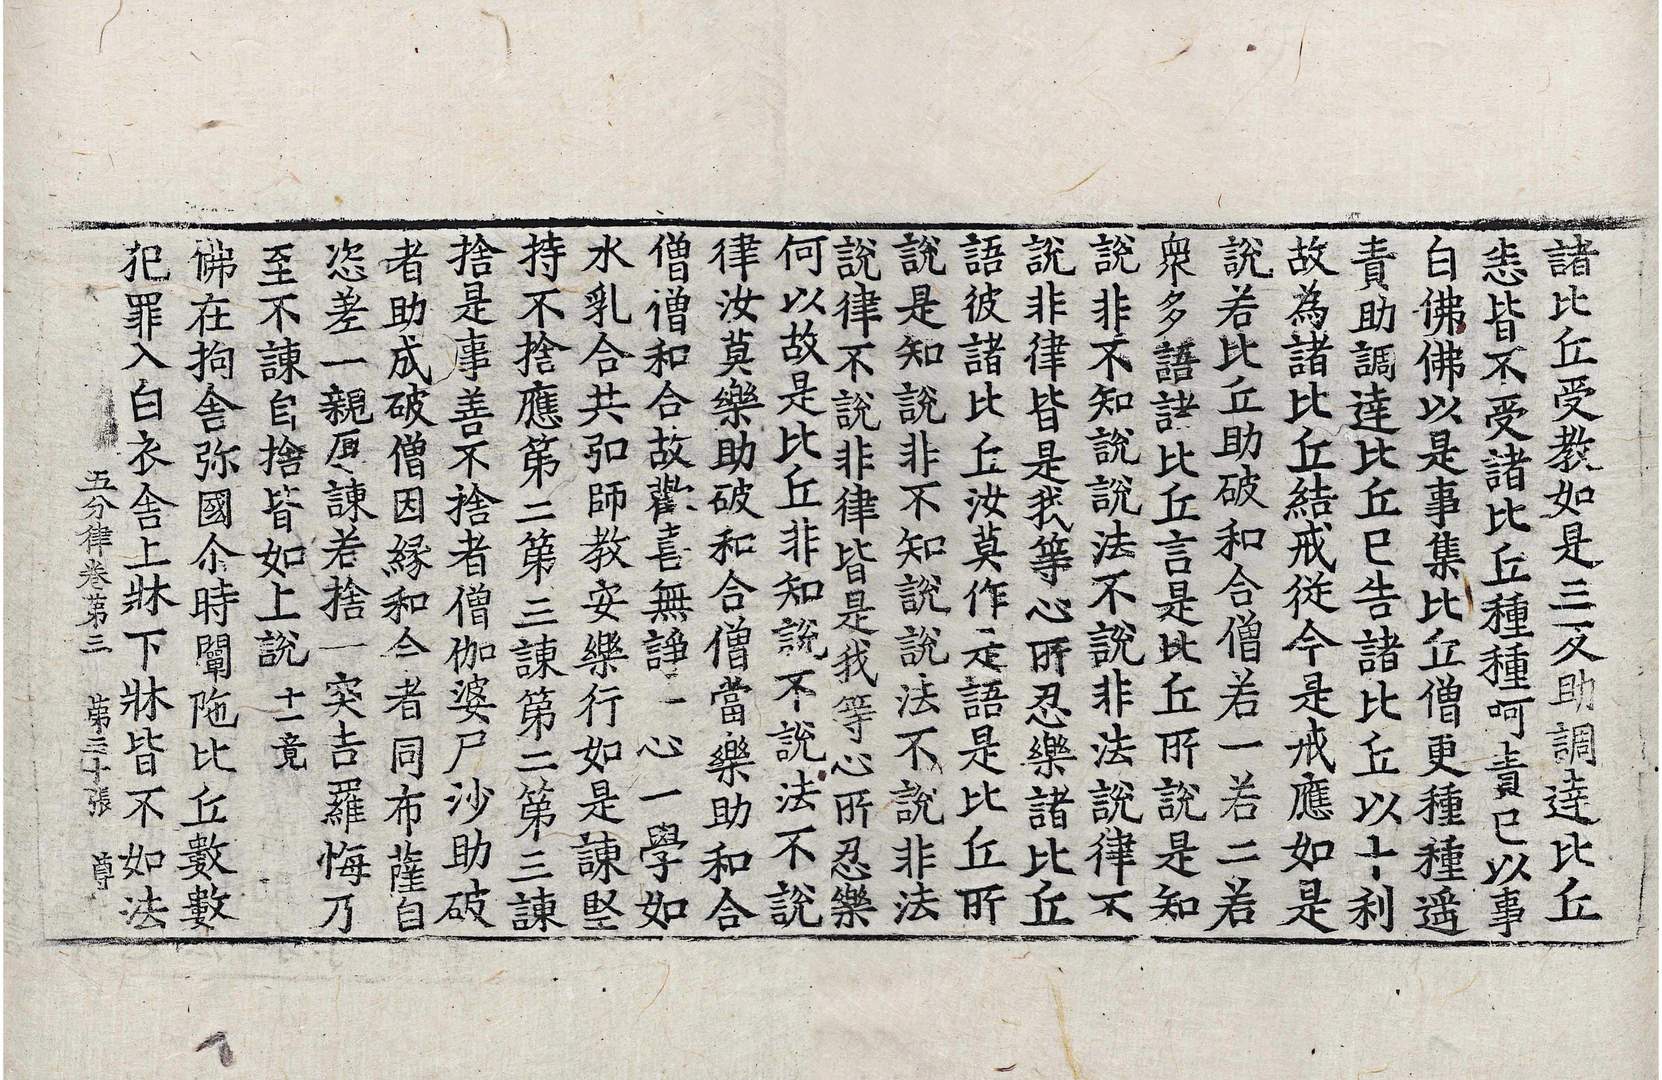 諸比丘受教如是三反助調達比丘
恚皆不受諸比丘種種呵責已以事
白佛佛以是事集比丘僧更種種遥
責助調達比丘已告諸比丘以十利
故為諸比丘結戒従今是戒應如是
說若比丘助破和合僧若一若二若
衆多語諸比丘言是比丘所說是知
說非不知說說法不說非法說律不
說非律皆是我等心所忍樂諸比丘
語彼諸比丘汝莫作是語是比丘所
說是知說非不知說說法不說非法
說律不說非律皆是我等心所忍樂
何以故是比丘非知說不說法不說
律汝莫樂助破和合僧當樂助和合
僧僧和合故歡喜無諍一心一學如
水乳合共弘師教安樂行如是諫堅
持不捨應第二第三諫第二第三諫
捨是事善不捨者僧伽婆尸沙助破
者助成破僧因縁和合者同布薩自
恣差一親厚諫若捨一突吉羅悔乃
至不諫自捨皆如上說十一竟
佛在拘舍弥國尒時闡陁比丘數數
犯罪入白衣舍上牀下牀皆不如法
五分律卷第三 第三十張 尊